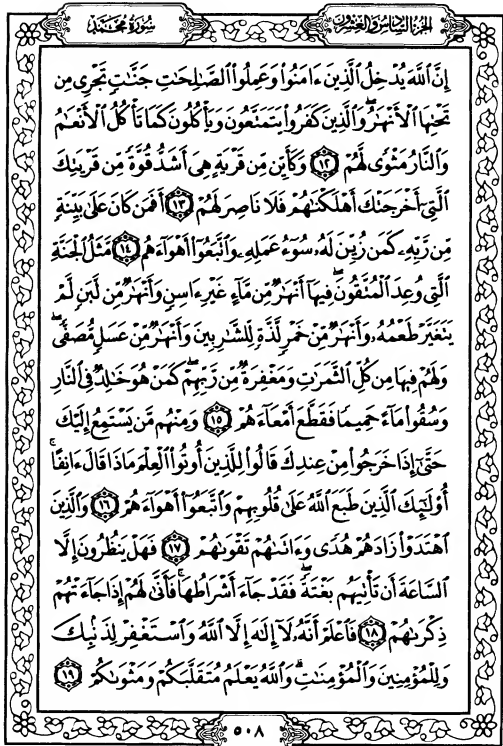 سُورَةُ مُحَمَّدٍ
الجُزءُ السَّادِسُ وَالعِشْرُونَ
إِنَّ ٱللَّهَ يُدْخِلُ ٱلَّذِينَ ءَامَنُوا۟ وَعَمِلُوا۟ ٱلصَّٰلِحَٰتِ جَنَّٰتٍ تَجْرِى مِن
تَحْتِهَا ٱلْأَنْهَٰرُ ۖ وَٱلَّذِينَ كَفَرُوا۟ يَتَمَتَّعُونَ وَيَأْكُلُونَ كَمَا تَأْكُلُ ٱلْأَنْعَٰمُ
وَٱلنَّارُ مَثْوًى لَّهُمْ ١٢ وَكَأَيِّن مِّن قَرْيَةٍ هِىَ أَشَدُّ قُوَّةً مِّن قَرْيَتِكَ
ٱلَّتِىٓ أَخْرَجَتْكَ أَهْلَكْنَٰهُمْ فَلَا نَاصِرَ لَهُمْ ١٣ أَفَمَن كَانَ عَلَىٰ بَيِّنَةٍ
مِّن رَّبِّهِۦ كَمَن زُيِّنَ لَهُۥ سُوٓءُ عَمَلِهِۦ وَٱتَّبَعُوٓا۟ أَهْوَآءَهُم ١٤ مَّثَلُ ٱلْجَنَّةِ
ٱلَّتِى وُعِدَ ٱلْمُتَّقُونَ ۖ فِيهَآ أَنْهَٰرٌ مِّن مَّآءٍ غَيْرِ ءَاسِنٍ وَأَنْهَٰرٌ مِّن لَّبَنٍ لَّمْ
يَتَغَيَّرْ طَعْمُهُۥ وَأَنْهَٰرٌ مِّنْ خَمْرٍ لَّذَّةٍ لِّلشَّٰرِبِينَ وَأَنْهَٰرٌ مِّنْ عَسَلٍ مُّصَفًّى ۖ
وَلَهُمْ فِيهَا مِن كُلِّ ٱلثَّمَرَٰتِ وَمَغْفِرَةٌ مِّن رَّبِّهِمْ ۖ كَمَنْ هُوَ خَٰلِدٌ فِى ٱلنَّارِ
وَسُقُوا۟ مَآءً حَمِيمًا فَقَطَّعَ أَمْعَآءَهُمْ ١٥ وَمِنْهُم مَّن يَسْتَمِعُ إِلَيْكَ
حَتَّىٰٓ إِذَا خَرَجُوا۟ مِنْ عِندِكَ قَالُوا۟ لِلَّذِينَ أُوتُوا۟ ٱلْعِلْمَ مَاذَا قَالَ ءَانِفًا ۚ
أُو۟لَٰٓئِكَ ٱلَّذِينَ طَبَعَ ٱللَّهُ عَلَىٰ قُلُوبِهِمْ وَٱتَّبَعُوٓا۟ أَهْوَآءَهُمْ ١٦ وَٱلَّذِينَ
ٱهْتَدَوْا۟ زَادَهُمْ هُدًى وَءَاتَىٰهُمْ تَقْوَىٰهُمْ ١٧ فَهَلْ يَنظُرُونَ إِلَّا
ٱلسَّاعَةَ أَن تَأْتِيَهُم بَغْتَةً ۖ فَقَدْ جَآءَ أَشْرَاطُهَا ۚ فَأَنَّىٰ لَهُمْ إِذَا جَآءَتْهُمْ
ذِكْرَىٰهُمْ ١٨ فَٱعْلَمْ أَنَّهُۥ لَآ إِلَٰهَ إِلَّا ٱللَّهُ وَٱسْتَغْفِرْ لِذَنۢبِكَ
وَلِلْمُؤْمِنِينَ وَٱلْمُؤْمِنَٰتِ ۗ وَٱللَّهُ يَعْلَمُ مُتَقَلَّبَكُمْ وَمَثْوَىٰكُمْ ١٩
٥٠٨